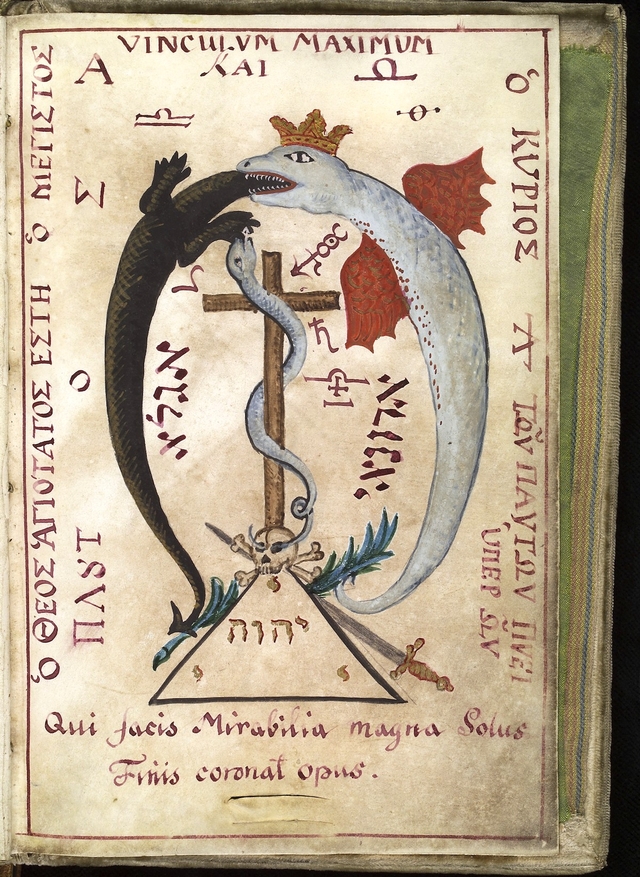 VINCULVM MAXIMUM
Α ΚΑΙ Ω
Ὁ ΘΕΟΣ ἉΓΙΟΤΑΤΟΣ ΕΣΤΗ Ὁ ΜΕΓΙΣΤΟΣ
Ὁ ΚΥΡΙΟΣ
ΤΩΝ ΠΑΝΤΩΝ
ὙΠΕΡ ΩΝ
אגלא
יהוה
Qui facis Mirabilia magna Solus
Finis coronat opus.